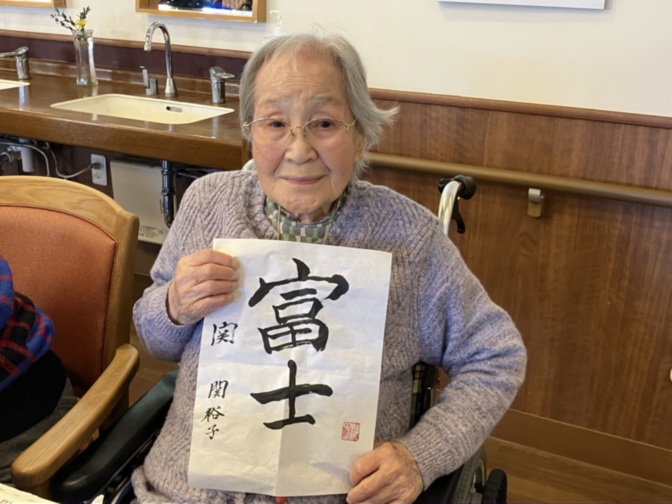 富士
関 関裕子